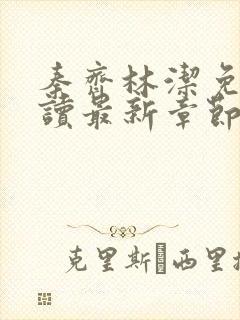 秦齊林潔免
讀最新章節
克里斯 西里